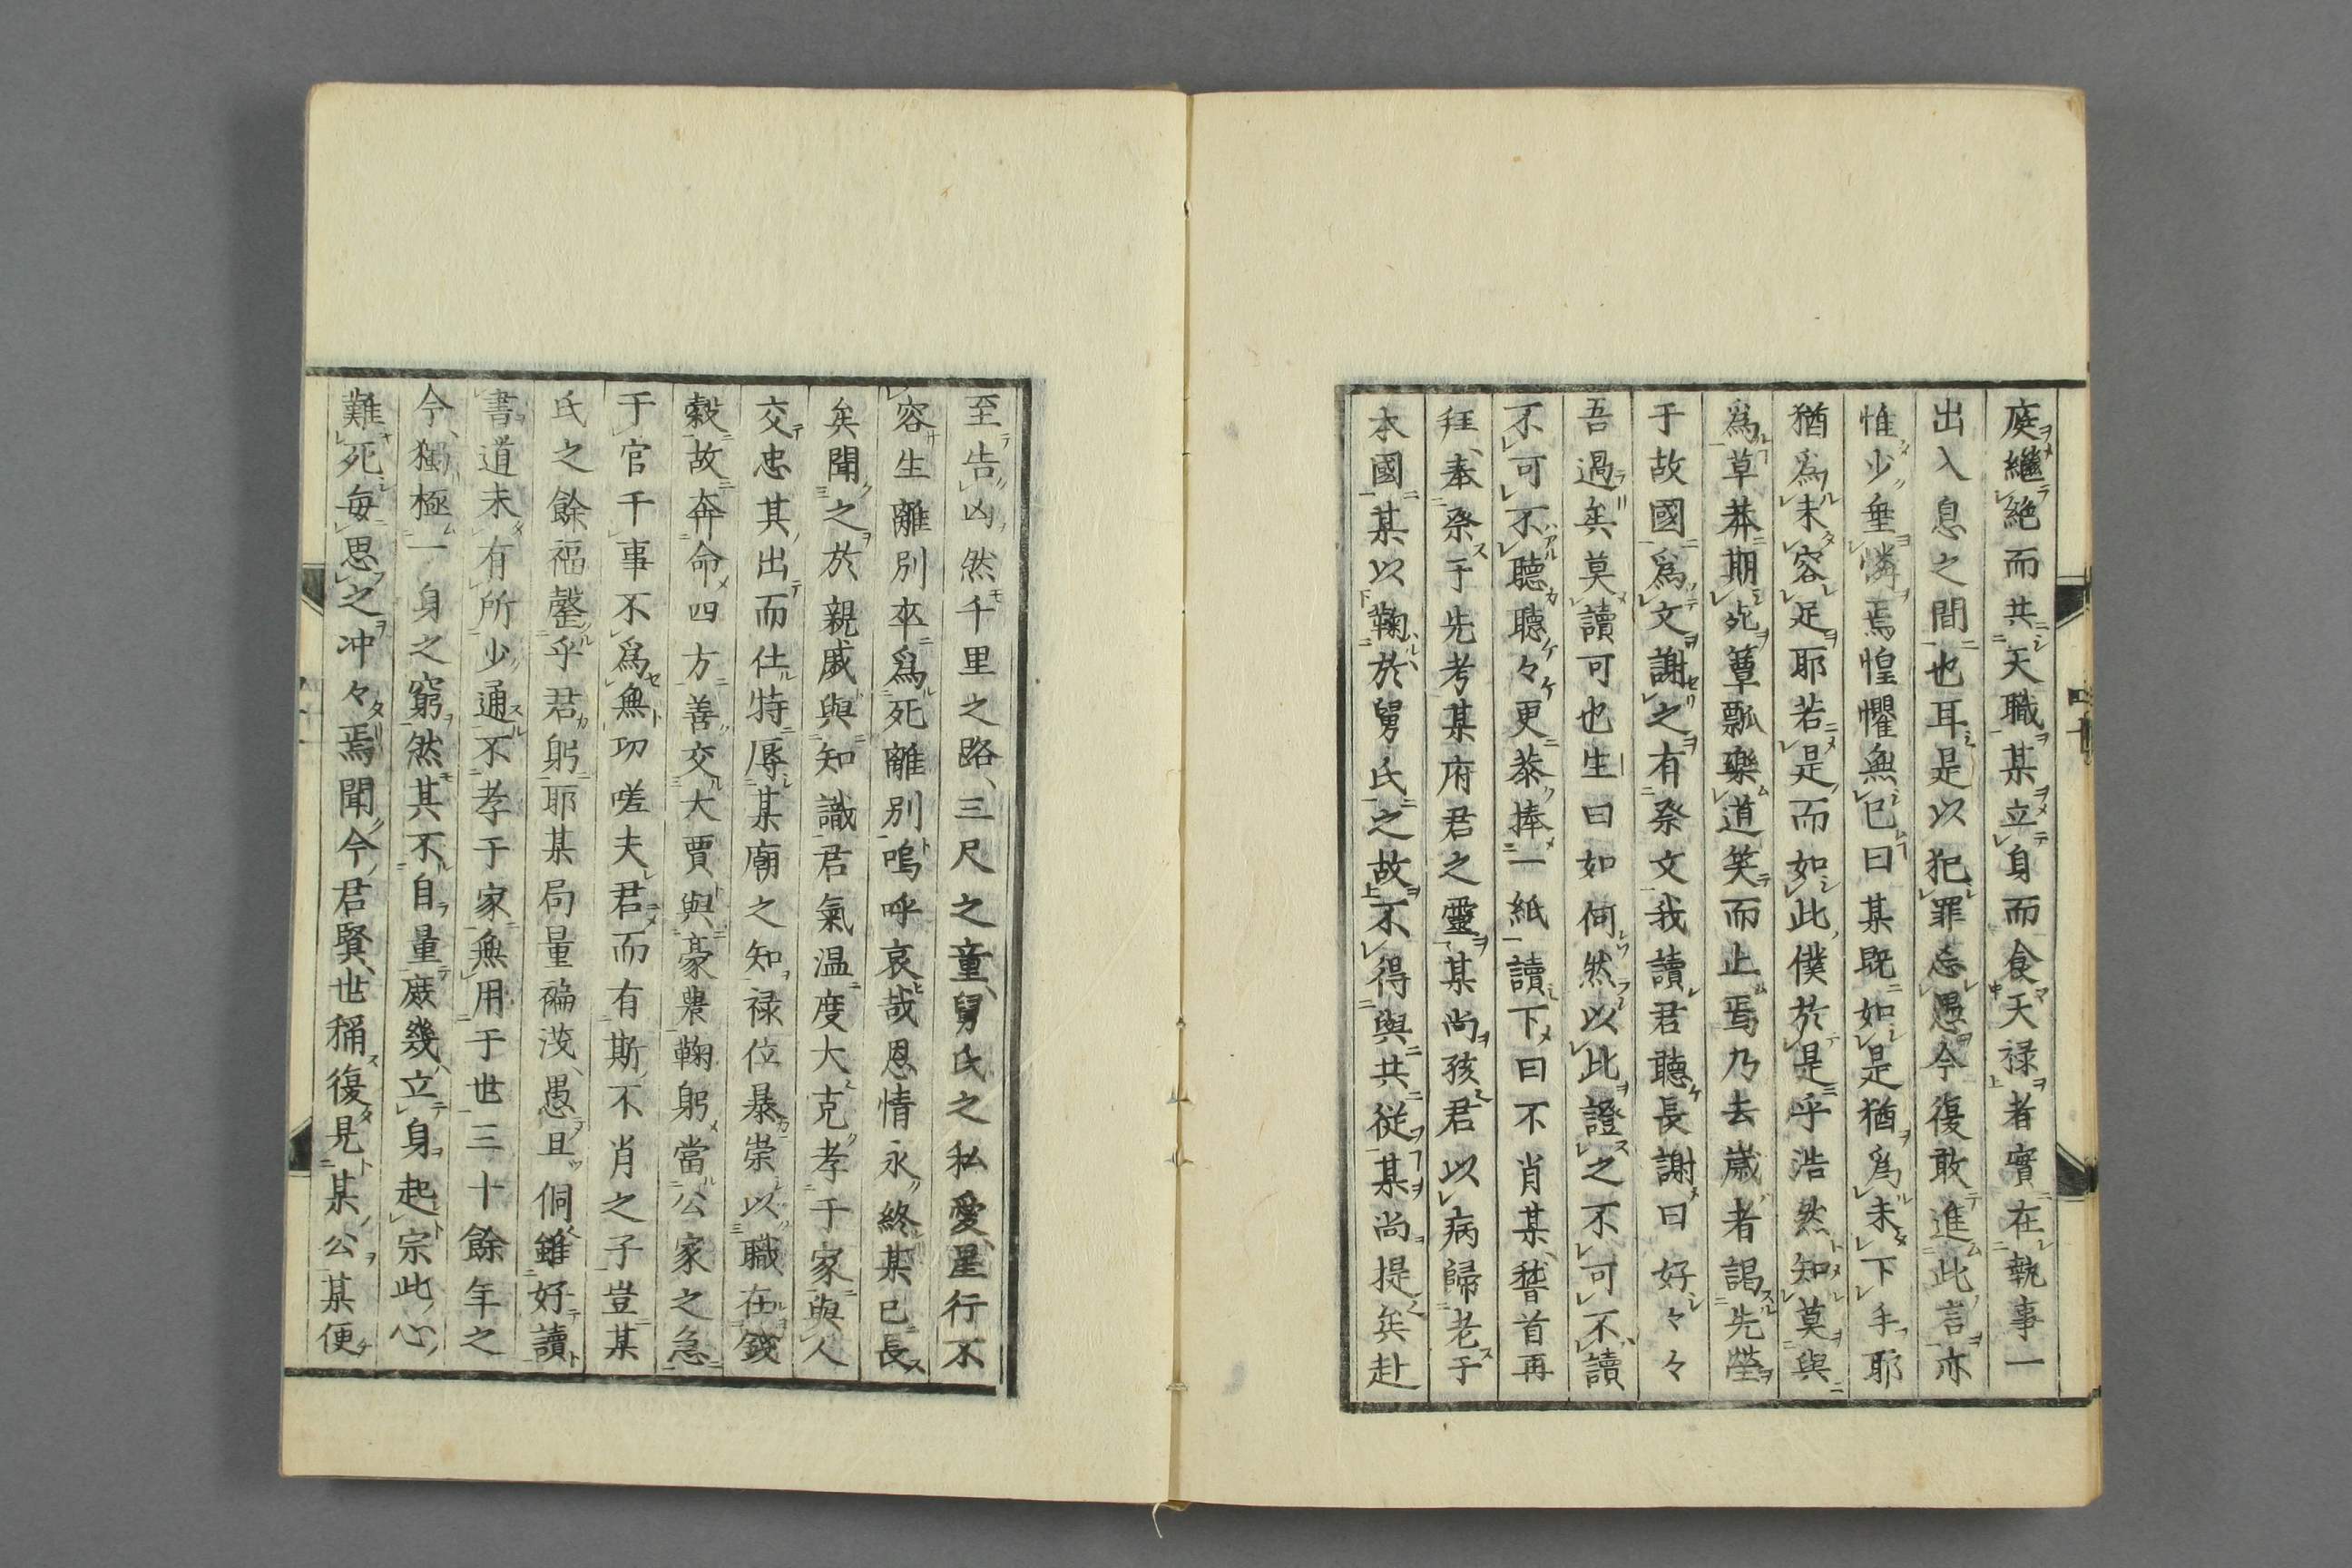 庭繼絶而共天職某立身而食天禄者實在執事一
出入息之間也耳是以犯罪忘愚今復敢進此言亦
惟少垂憐焉惶懼無已曰某既如是猶爲未下手耶
猶爲未容足耶若是而如此僕於是乎浩然知莫與
爲草莽期死簟瓢樂道笑而止焉乃去歳者謁先塋
于故國爲文謝之有祭文我讀君聽長謝曰好々々
吾過矣莫讀可也生曰如何然以此證之不可不讀
不可不聽聽々更恭捧一紙讀下曰不肖某稽首再
拜奉祭于先考某府君之靈某尚孩君以病歸老于
本國某以鞠於舅氏之故不得與共従某尚提矣赴
至告凶然千里之路三尺之童舅氏之私愛星行不
容生離別卒爲死離別嗚呼哀哉恩情永終某已長
矣聞之於親戚與知識君氣温度大克孝于家與人
交忠其出而仕特辱某廟之知禄位暴崇以職在錢
穀故奔命四方善交大賈與豪農鞠躬當公家之急
于官千事不爲無功嗟夫君而有斯不肖之子豈某
氏之餘福罄乎君躬耶某局量褊淺愚且侗雖好讀
書道未有所少通不孝于家無用于世三十餘年之
今獨極一身之窮然其不自量庶幾立身起宗此心
難死毎思之冲々焉聞今君賢世稱復見某公某便
四十